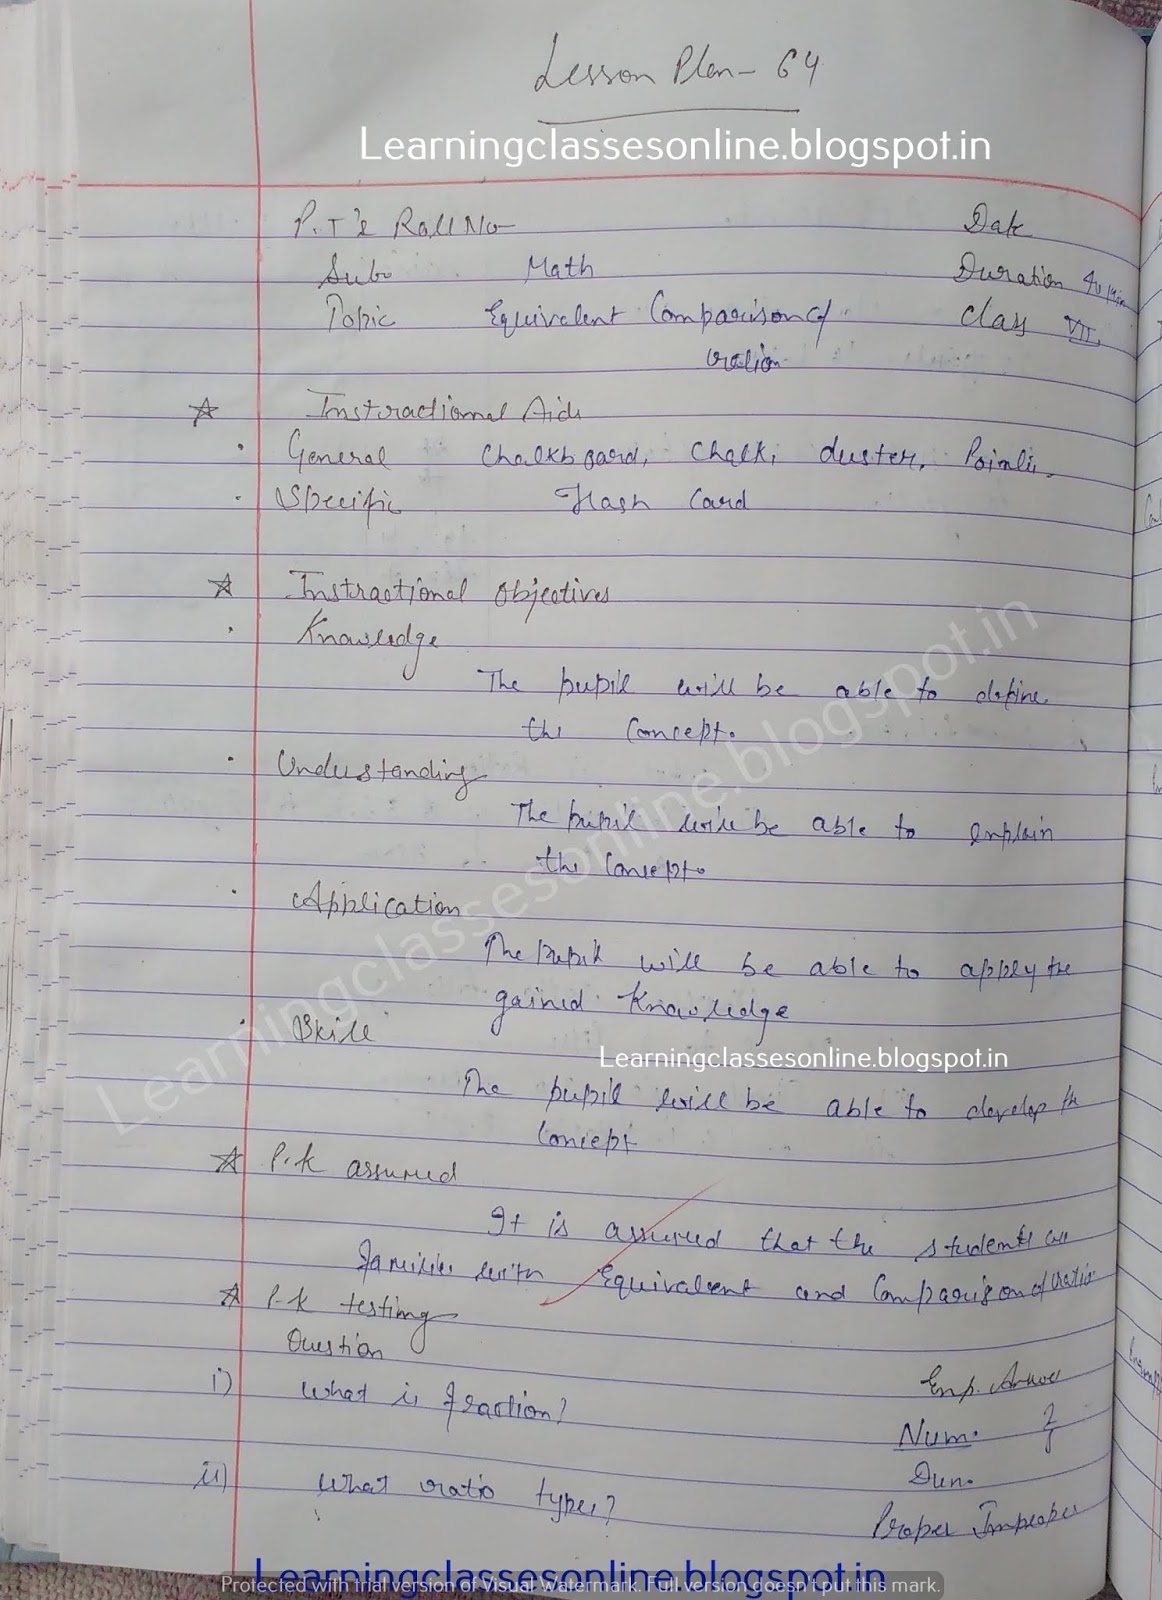 Lesson Plan - 64
Learningclassesonline.blogspot.in
P.T's Roll No-
Date
Sub
Math
Duration 40 Min
Topic Equivalent Comparison of
Class VII
ration
☆ Instractional Aids
· General Chalkboard, Chalk, duster,
· Specific Flash Card
☆ Instractional Objectives
· Knowledge
The pupil will be able to define
the Concept.
· Understanding
The pupil will be able to explain
the Concept.
· Application
The pupil will be able to apply the
gained Knowledge
· Skill
Learningclassesonline.blogspot.in
The pupil will be able to develop the
Concept
☆ P.k assumed
It is assumed that the students are
familier with Equivalent and Comparison of ratio
☆ P.k testing
Question
Exp. Answer
i) What is fraction?
Num.
Den.
ii) What ratio types?
Proper Improper
Learningclassesonline.blogspot.in
Learningclassesonline.blogspot.in
Protected with trial version of Visual Watermark. Full version doesn't put this mark.